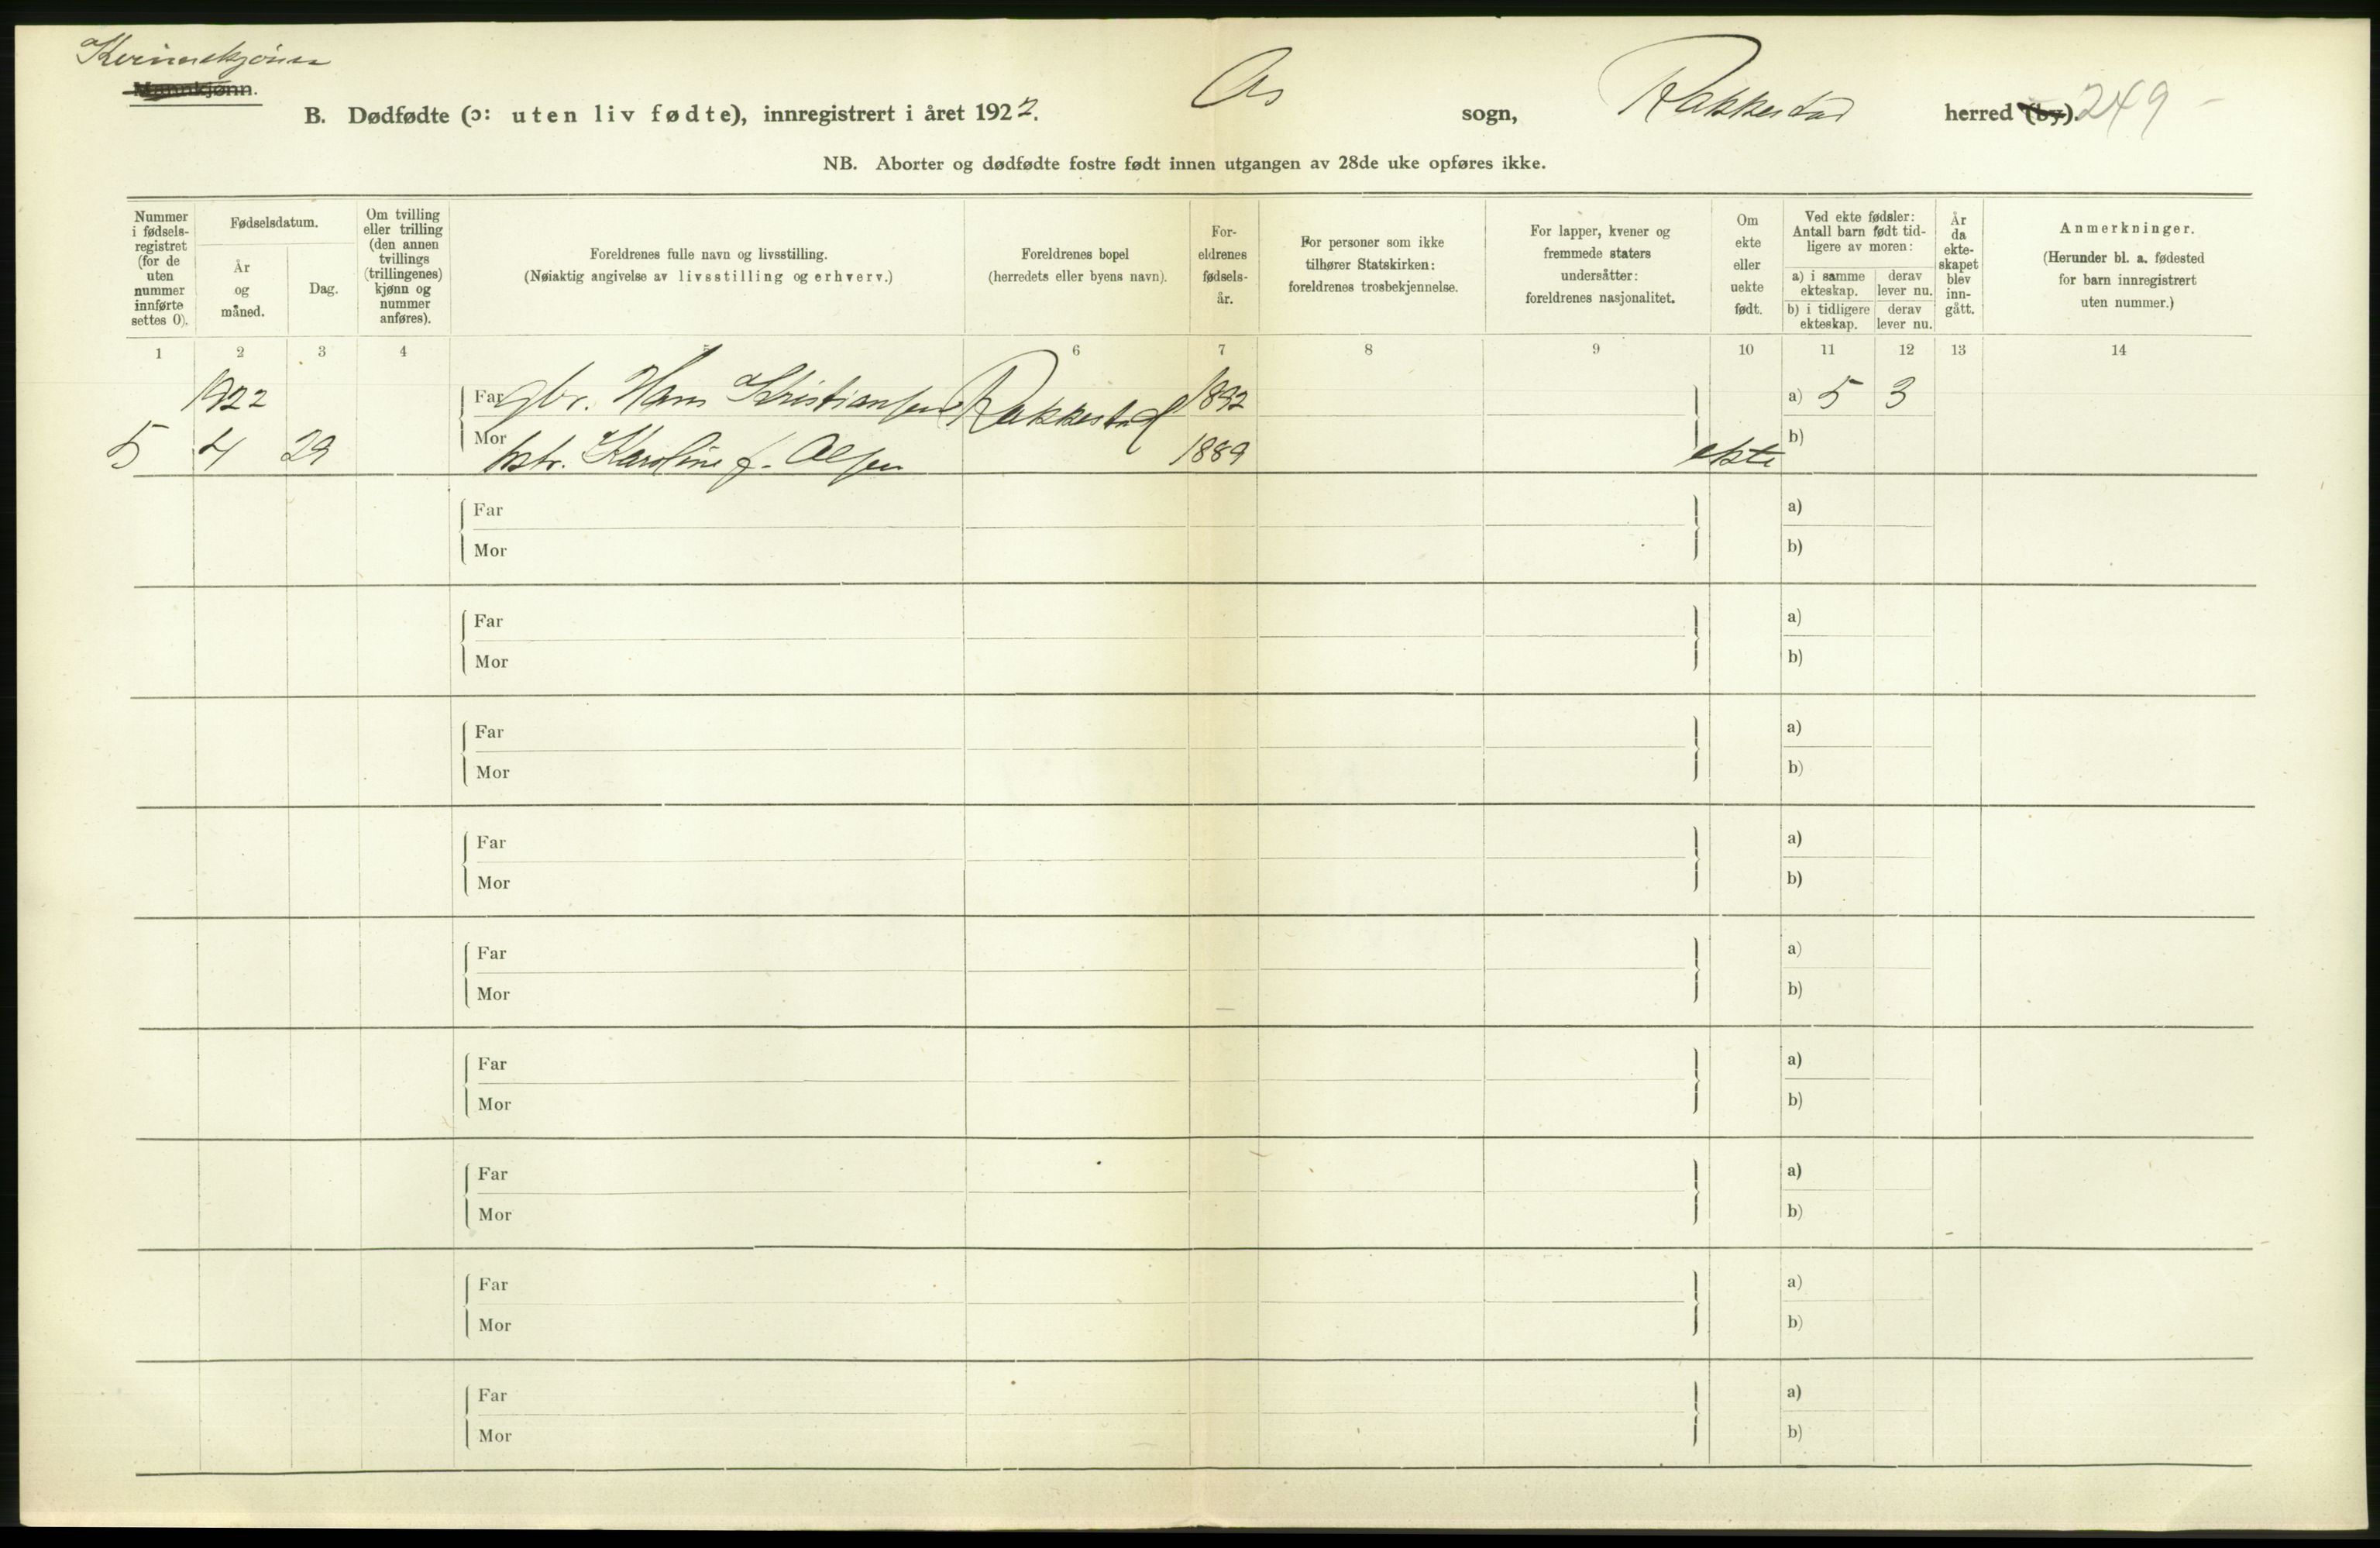 Kvinnekjønn
Mannkjønn.
B. Dødfødte (ɔ: uten liv fødte), innregistrert i året 1922. Os sogn, Rakkestad herred (by). 249 -
NB. Aborter og dødfødte fostre født innen utgangen av 28de uke opføres ikke.
Nummer
i fødsels-
registret
(for de
uten
nummer
innførte
settes 0).
Fødselsdatum.
År
og
måned.
Dag.
Om tvilling
eller trilling
(den annen
tvillings
(trillingenes)
kjønn og
nummer
anføres).
Foreldrenes fulle navn og livsstilling.
(Nøiaktig angivelse av livsstilling og erhverv.)
Foreldrenes bopel
(herredets eller byens navn).
For-
eldrenes
fødsels-
år.
For personer som ikke
tilhører Statskirken:
foreldrenes trosbekjennelse.
For lapper, kvener og
fremmede staters
undersåtter:
foreldrenes nasjonalitet.
Om
ekte
eller
uekte
født.
Ved ekte fødsler:
Antall barn født tid-
ligere av moren:
a) i samme
ekteskap.
derav
lever nu.
b) i tidligere
ekteskap.
derav
lever nu.
År
da
ekte-
skapet
blev
inn-
gått.
Anmerkninger.
(Herunder bl. a. fødested
for barn innregistrert
uten nummer.)
1 2 3 4 5 6 7 8 9 10 11 12 13 14
1922 Far gbr. Hans Kristiansen Rakkestad 1892 a) 5 3
5 4 29 Mor hstr. Karoline f. Olsen 1889 ekte b)
Far a)
Mor b)
Far a)
Mor b)
Far a)
Mor b)
Far a)
Mor b)
Far a)
Mor b)
Far a)
Mor b)
Far a)
Mor b)
Far a)
Mor b)
Far a)
Mor b)